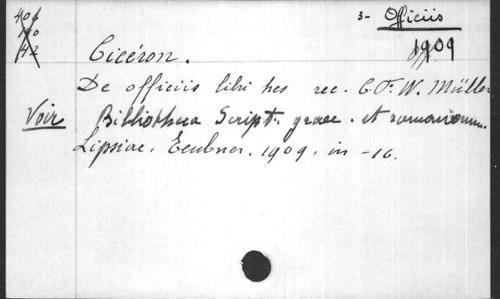 406
3- Officiis
1909
42
Cicéron.
De officiis libri hes rec. C. F. W. Müller
Voir Bibliotheca Script. graec. et romanorum.
Lipsiae, Teubner, 1909, in-16.